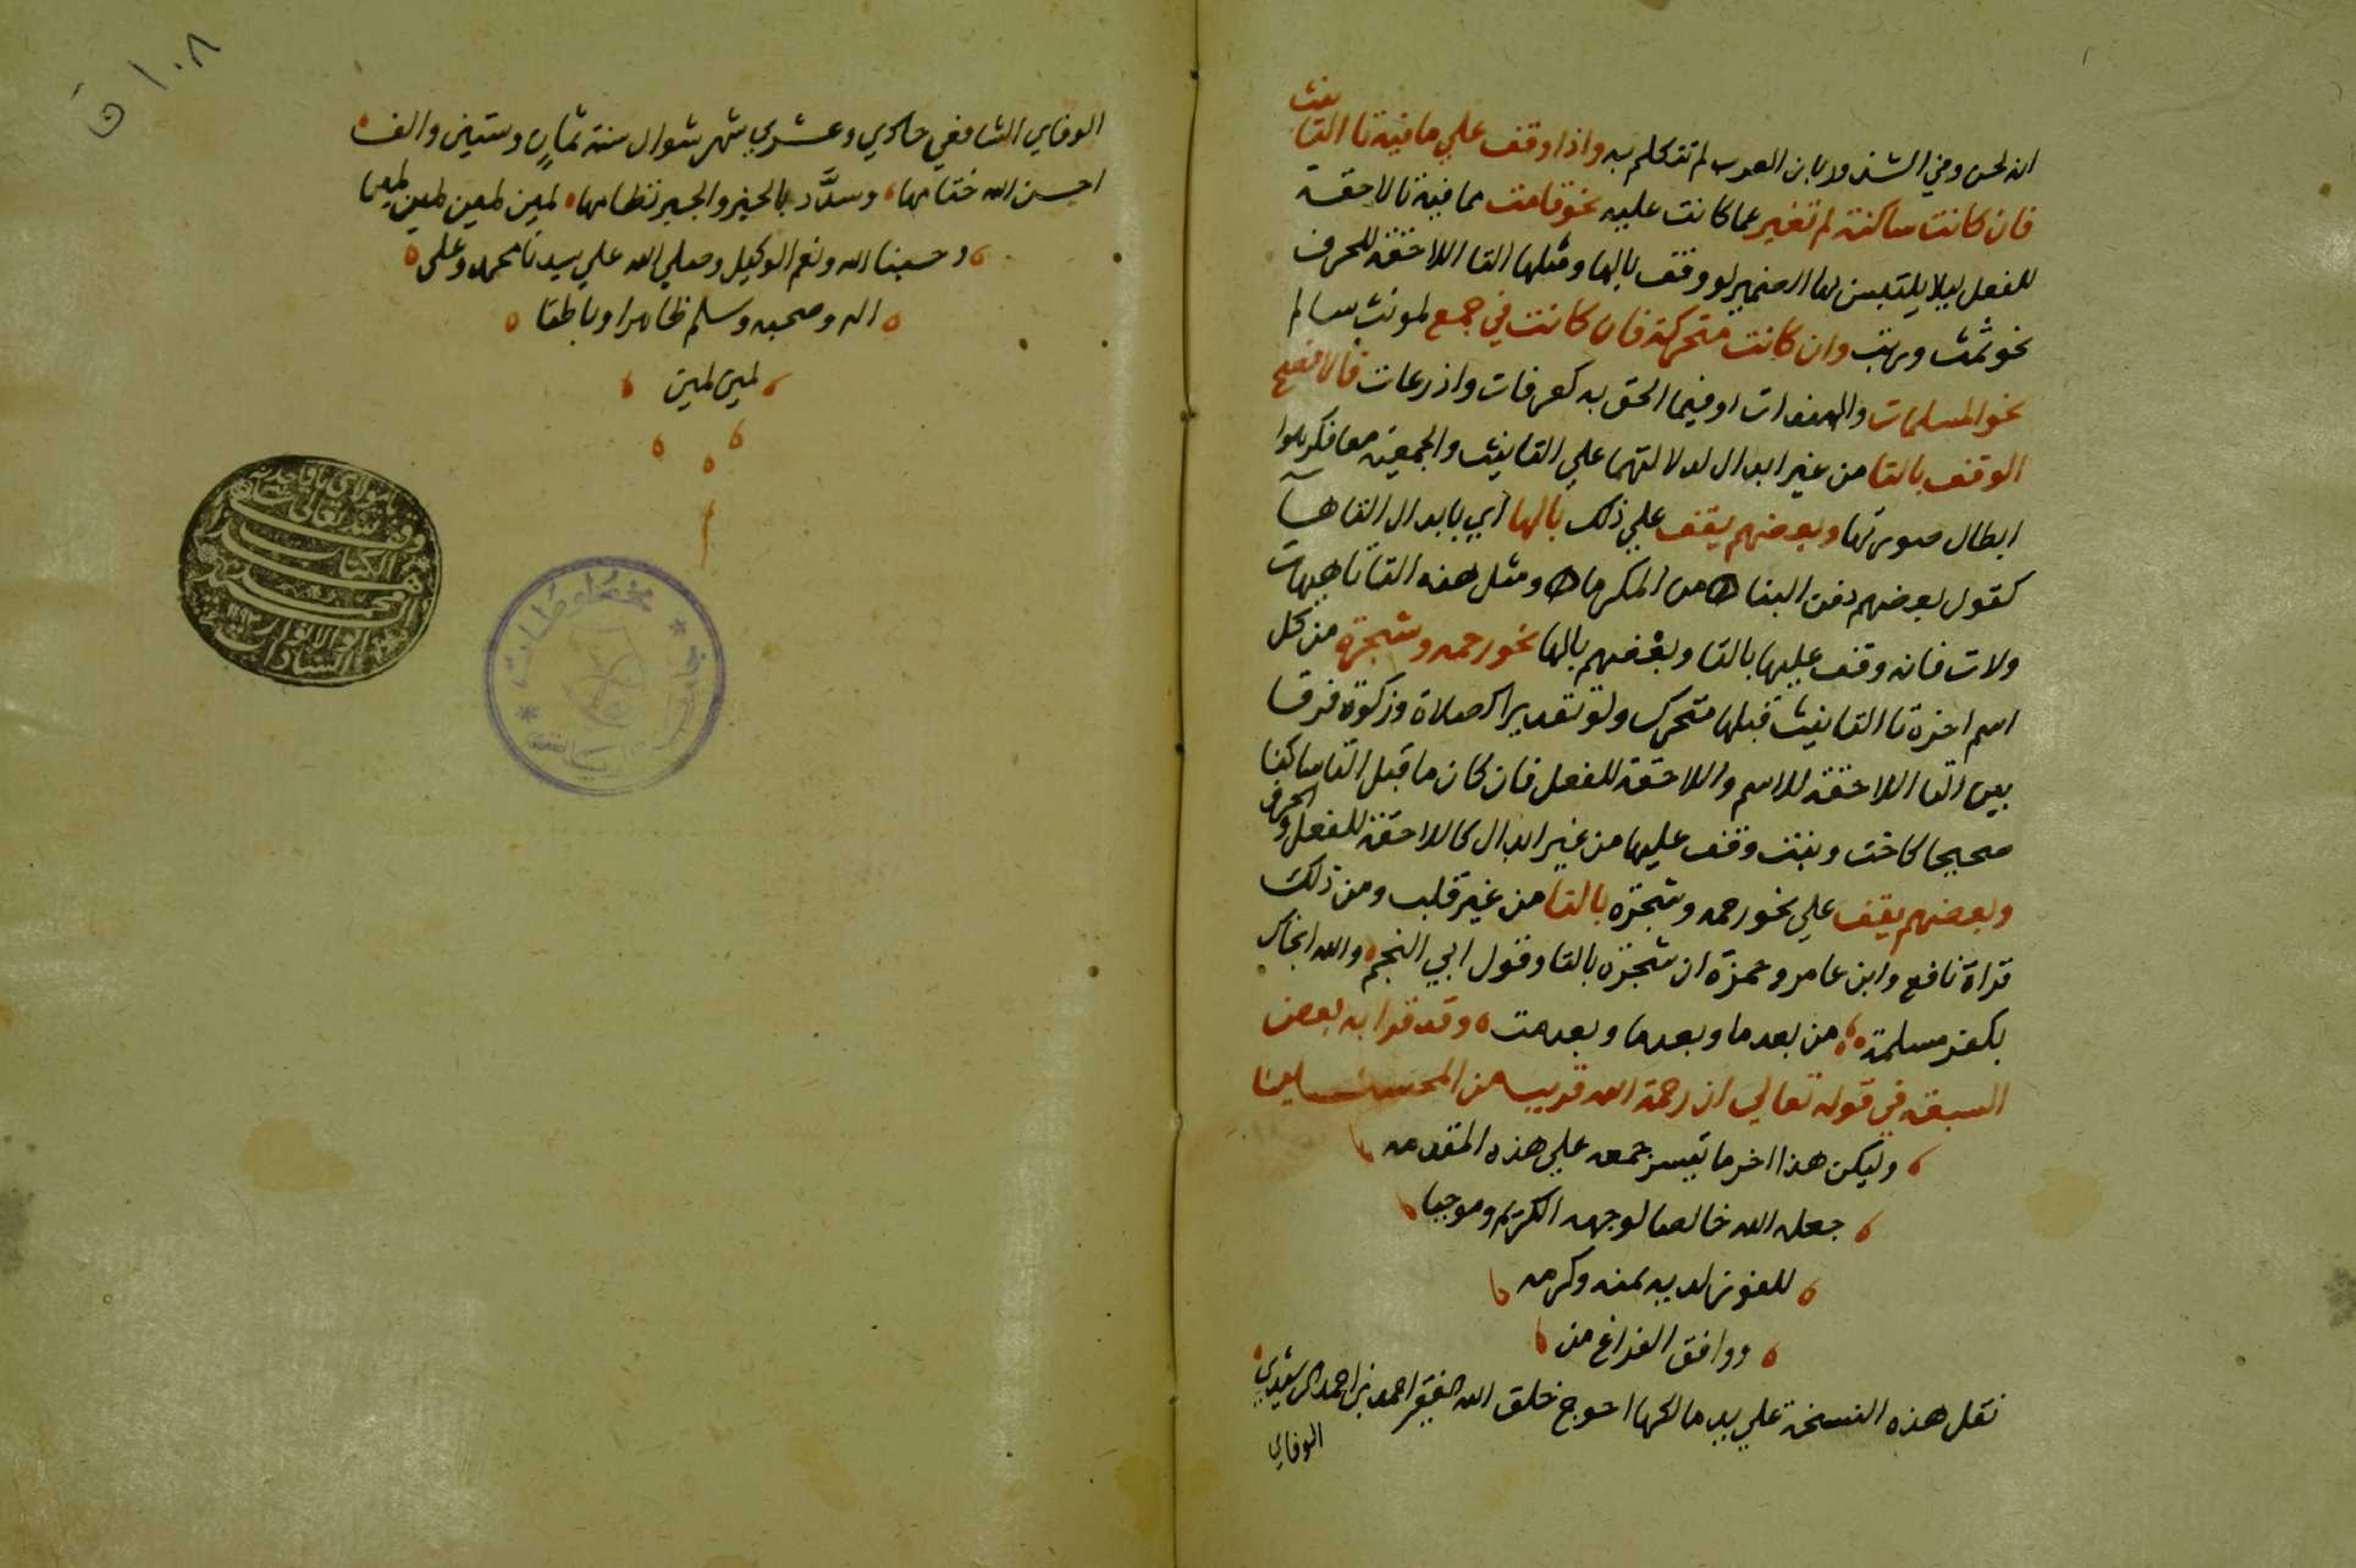 انه لحن وفي الشذور بان العرب لم تتكلم به واذا وقف علي ما فيه تا التانيث
فان كانت ساكنة لم تغير عما كانت عليه نحو قامت مما فيه تا لاحقة
للفعل ليلا يلتبس بها الضمير لو وقف بالها ومثلها التا اللاحقة للحرف
نحو ثمت وربت وان كانت متحركة فان كانت في جمع لمونث سالم
نحو المسلمات والهندات او فيما الحق به كعرفات واذرعات فالافصح
الوقف بالتا من غير ابدال لدلالتها علي التانيث والجمعية معا فكرهوا
ابطال صورتها وبعضهم يقف علي ذلك بالها اي بابدال التا هاً
كقول بعضهم دفن البناه من المكرماه ومثل هذه التا تا هيهات
ولات فانه وقف عليها بالتا وبعضهم بالها نحو رحمه وشجرة من كل
اسم اخره تا التانيث قبلها متحرك ولو تقديرا كصلاة وزكوة فرقا
بين التا اللاحقة للاسم واللاحقة للفعل فان كان ما قبل التا ساكنا
صحيحا كاخت وبنت وقف عليها من غير ابدال كاللاحقة للفعل والحرف
وبعضهم يقف علي نحو رحمه وشجره بالتا من غير قلب ومن ذلك
قراة نافع وابن عامر وحمزة ان شجرة بالتا وقول ابي النجم والله انجاك
بكف مسلمة من بعدما وبعدما وبعدمت وقد قرا به بعض
السبعة في قوله تعالي ان رحمة الله قريب من المحسنين
وليكن هذا اخر ما تيسر جمعه علي هذه المقدمه
جعله الله خالصا لوجهه الكريم وموجبا
للفوز لديه بمنه وكرمه
ووافق الفراغ من
نقل هذه النسخة علي يد مالكها احوج خلق الله الفقير احمد بن احمد الرشيدي
الوفاي
١٠٨ ق
الوفاي الشافعي حادي وعشري شهر شوال سنة ثمانٍ وستين والف
احسن الله ختامها وسدَّد بالخير والجبر نظامها امين امين امين
وحسبنا الله ونعم الوكيل وصلي الله علي سيدنا محمد وعلى
اله وصحبه وسلم ظاهرا وباطنا
امين امين
وقف لله تعالى
الكتاب
محمد
ابو الانوار
السادات
مخطوطات